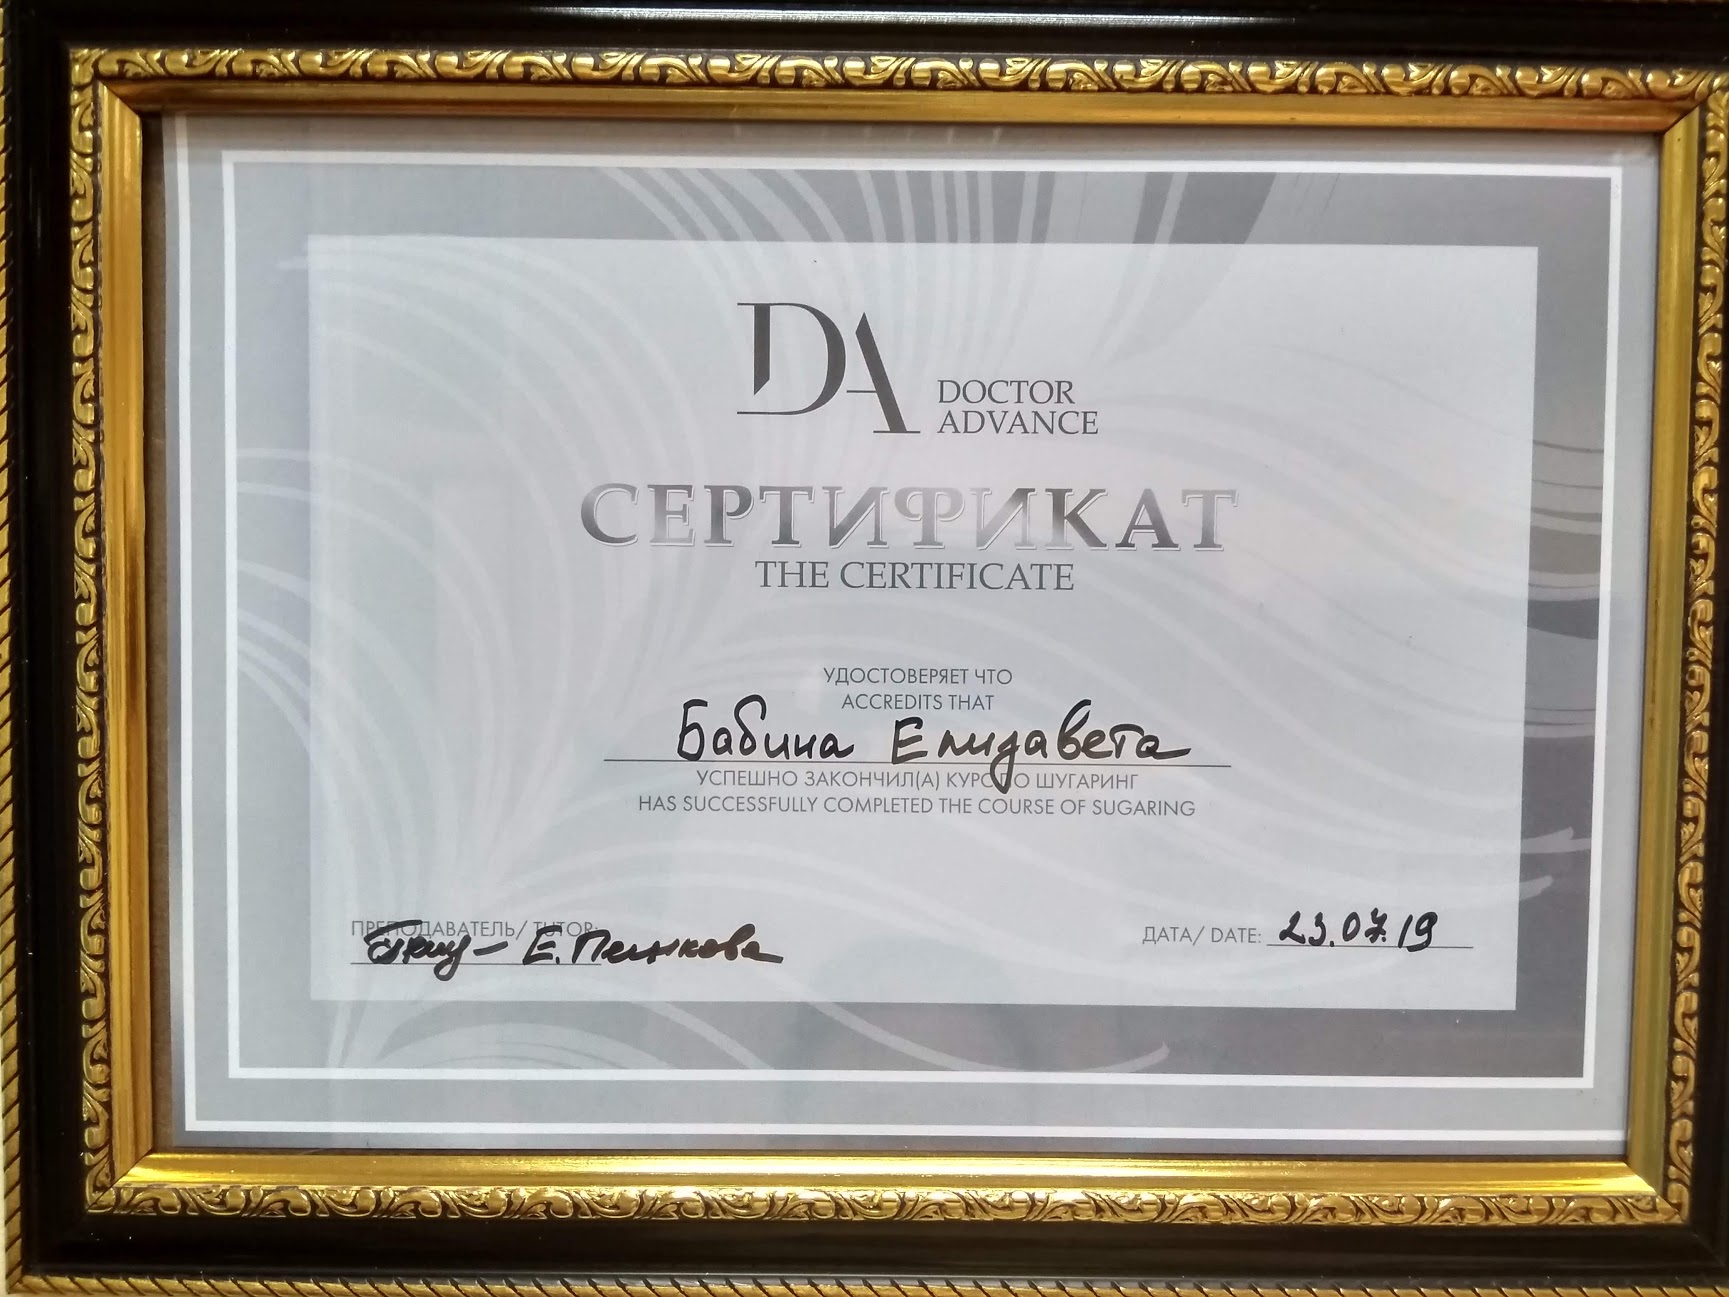 DA DOCTOR
ADVANCE
СЕРТИФИКАТ
THE CERTIFICATE
УДОСТОВЕРЯЕТ ЧТО
ACCREDITS THAT
Бабина Елизавета
УСПЕШНО ЗАКОНЧИЛ(А) КУРС ПО ШУГАРИНГ
HAS SUCCESSFULLY COMPLETED THE COURSE OF SUGARING
ПРЕПОДАВАТЕЛЬ/ TUTOR:
Е.
ДАТА/ DATE: 23.07.19